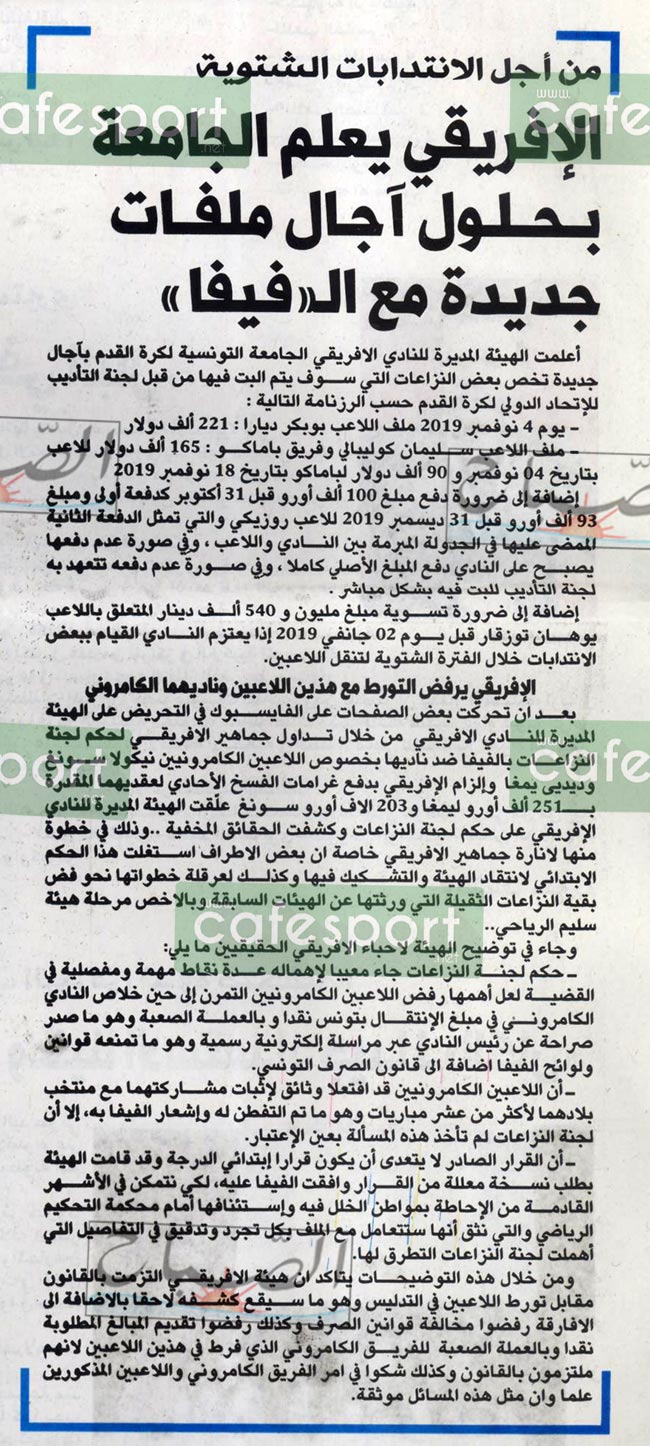 من أجل الانتدابات الشتوية
الإفريقي يعلم الجامعة
بحلول آجال ملفات
جديدة مع الـ«فيفا»
أعلمت الهيئة المديرة للنادي الافريقي الجامعة التونسية لكرة القدم بآجال
جديدة تخص بعض النزاعات التي سوف يتم البت فيها من قبل لجنة التأديب
للإتحاد الدولي لكرة القدم حسب الرزنامة التالية :
- يوم 4 نوفمبر 2019 ملف اللاعب بوبكر ديارا : 221 ألف دولار
- ملف اللاعب سليمان كوليبالي وفريق باماكو : 165 ألف دولار للاعب
بتاريخ 04 نوفمبر و 90 ألف دولار لباماكو بتاريخ 18 نوفمبر 2019
إضافة إلى ضرورة دفع مبلغ 100 ألف أورو قبل 31 أكتوبر كدفعة أولى ومبلغ
93 ألف أورو قبل 31 ديسمبر 2019 للاعب روزيكي والتي تمثل الدفعة الثانية
الممضى عليها في الجدولة المبرمة بين النادي واللاعب ، وفي صورة عدم دفعها
يصبح على النادي دفع المبلغ الأصلي كاملا ، وفي صورة عدم دفعه تتعهد به
لجنة التأديب للبت فيه بشكل مباشر .
إضافة إلى ضرورة تسوية مبلغ مليون و 540 ألف دينار المتعلق باللاعب
يوهان توزقار قبل يوم 02 جانفي 2019 إذا يعتزم النادي القيام ببعض
الانتدابات خلال الفترة الشتوية لتنقل اللاعبين.
الإفريقي يرفض التورط مع هذين اللاعبين وناديهما الكامروني
بعد ان تحركت بعض الصفحات على الفايسبوك في التحريض على الهيئة
المديرة للنادي الافريقي من خلال تداول جماهير الافريقي لحكم لجنة
النزاعات بالفيفا ضد ناديها بخصوص اللاعبين الكامرونيين نيكولا سونغ
وديديى يمغا وإلزام الإفريقي بدفع غرامات الفسخ الأحادي لعقديهما المقدرة
بـ251 ألف أورو ليمغا و203 الاف أورو سونغ علّقت الهيئة المديرة للنادي
الإفريقي على حكم لجنة النزاعات وكشفت الحقائق المخفية ..وذلك في خطوة
منها لانارة جماهير الافريقي خاصة ان بعض الاطراف استغلت هذا الحكم
الابتدائي لانتقاد الهيئة والتشكيك فيها وكذلك لعرقلة خطواتها نحو فض
بقية النزاعات الثقيلة التي ورثتها عن الهيئات السابقة وبالاخص مرحلة هيئة
سليم الرياحي..
وجاء في توضيح الهيئة لاحباء الافريقي الحقيقيين ما يلي:
- حكم لجنة النزاعات جاء معيبا لإهماله عدة نقاط مهمة ومفصلية في
القضية لعل أهمها رفض اللاعبين الكامرونيين التمرن إلى حين خلاص النادي
الكامروني في مبلغ الإنتقال بتونس نقدا و بالعملة الصعبة وهو ما صدر
صراحة عن رئيس النادي عبر مراسلة إلكترونية رسمية وهو ما تمنعه قوانين
ولوائح الفيفا اضافة الى قانون الصرف التونسي.
- أن اللاعبين الكامرونيين قد افتعلا وثائق لإثبات مشاركتهما مع منتخب
بلادهما لأكثر من عشر مباريات وهو ما تم التفطن له وإشعار الفيفا به، إلا أن
لجنة النزاعات لم تأخذ هذه المسألة بعين الإعتبار.
- أن القرار الصادر لا يتعدى أن يكون قرارا إبتدائي الدرجة وقد قامت الهيئة
بطلب نسخة معللة من القرار وافقت الفيفا عليه، لكي نتمكن في الأشهر
القادمة من الإحاطة بمواطن الخلل فيه وإستئنافها أمام محكمة التحكيم
الرياضي والتي نثق أنها ستتعامل مع الملف بكل تجرد وتدقيق في التفاصيل التي
أهملت لجنة النزاعات التطرق لها.
ومن خلال هذه التوضيحات يتأكد ان هيئة الافريقي التزمت بالقانون
مقابل تورط اللاعبين في التدليس وهو ما سيقع كشفه لاحقا بالاضافة الى
الافارقة رفضوا مخالفة قوانين الصرف وكذلك رفضوا تقديم المبالغ المطلوبة
نقدا وبالعملة الصعبة للفريق الكامروني الذي فرط في هذين اللاعبين لانهم
ملتزمون بالقانون وكذلك شكوا في امر الفريق الكامروني واللاعبين المذكورين
علما وان مثل هذه المسائل موثقة.
www.
cafesport
.net
الصباح